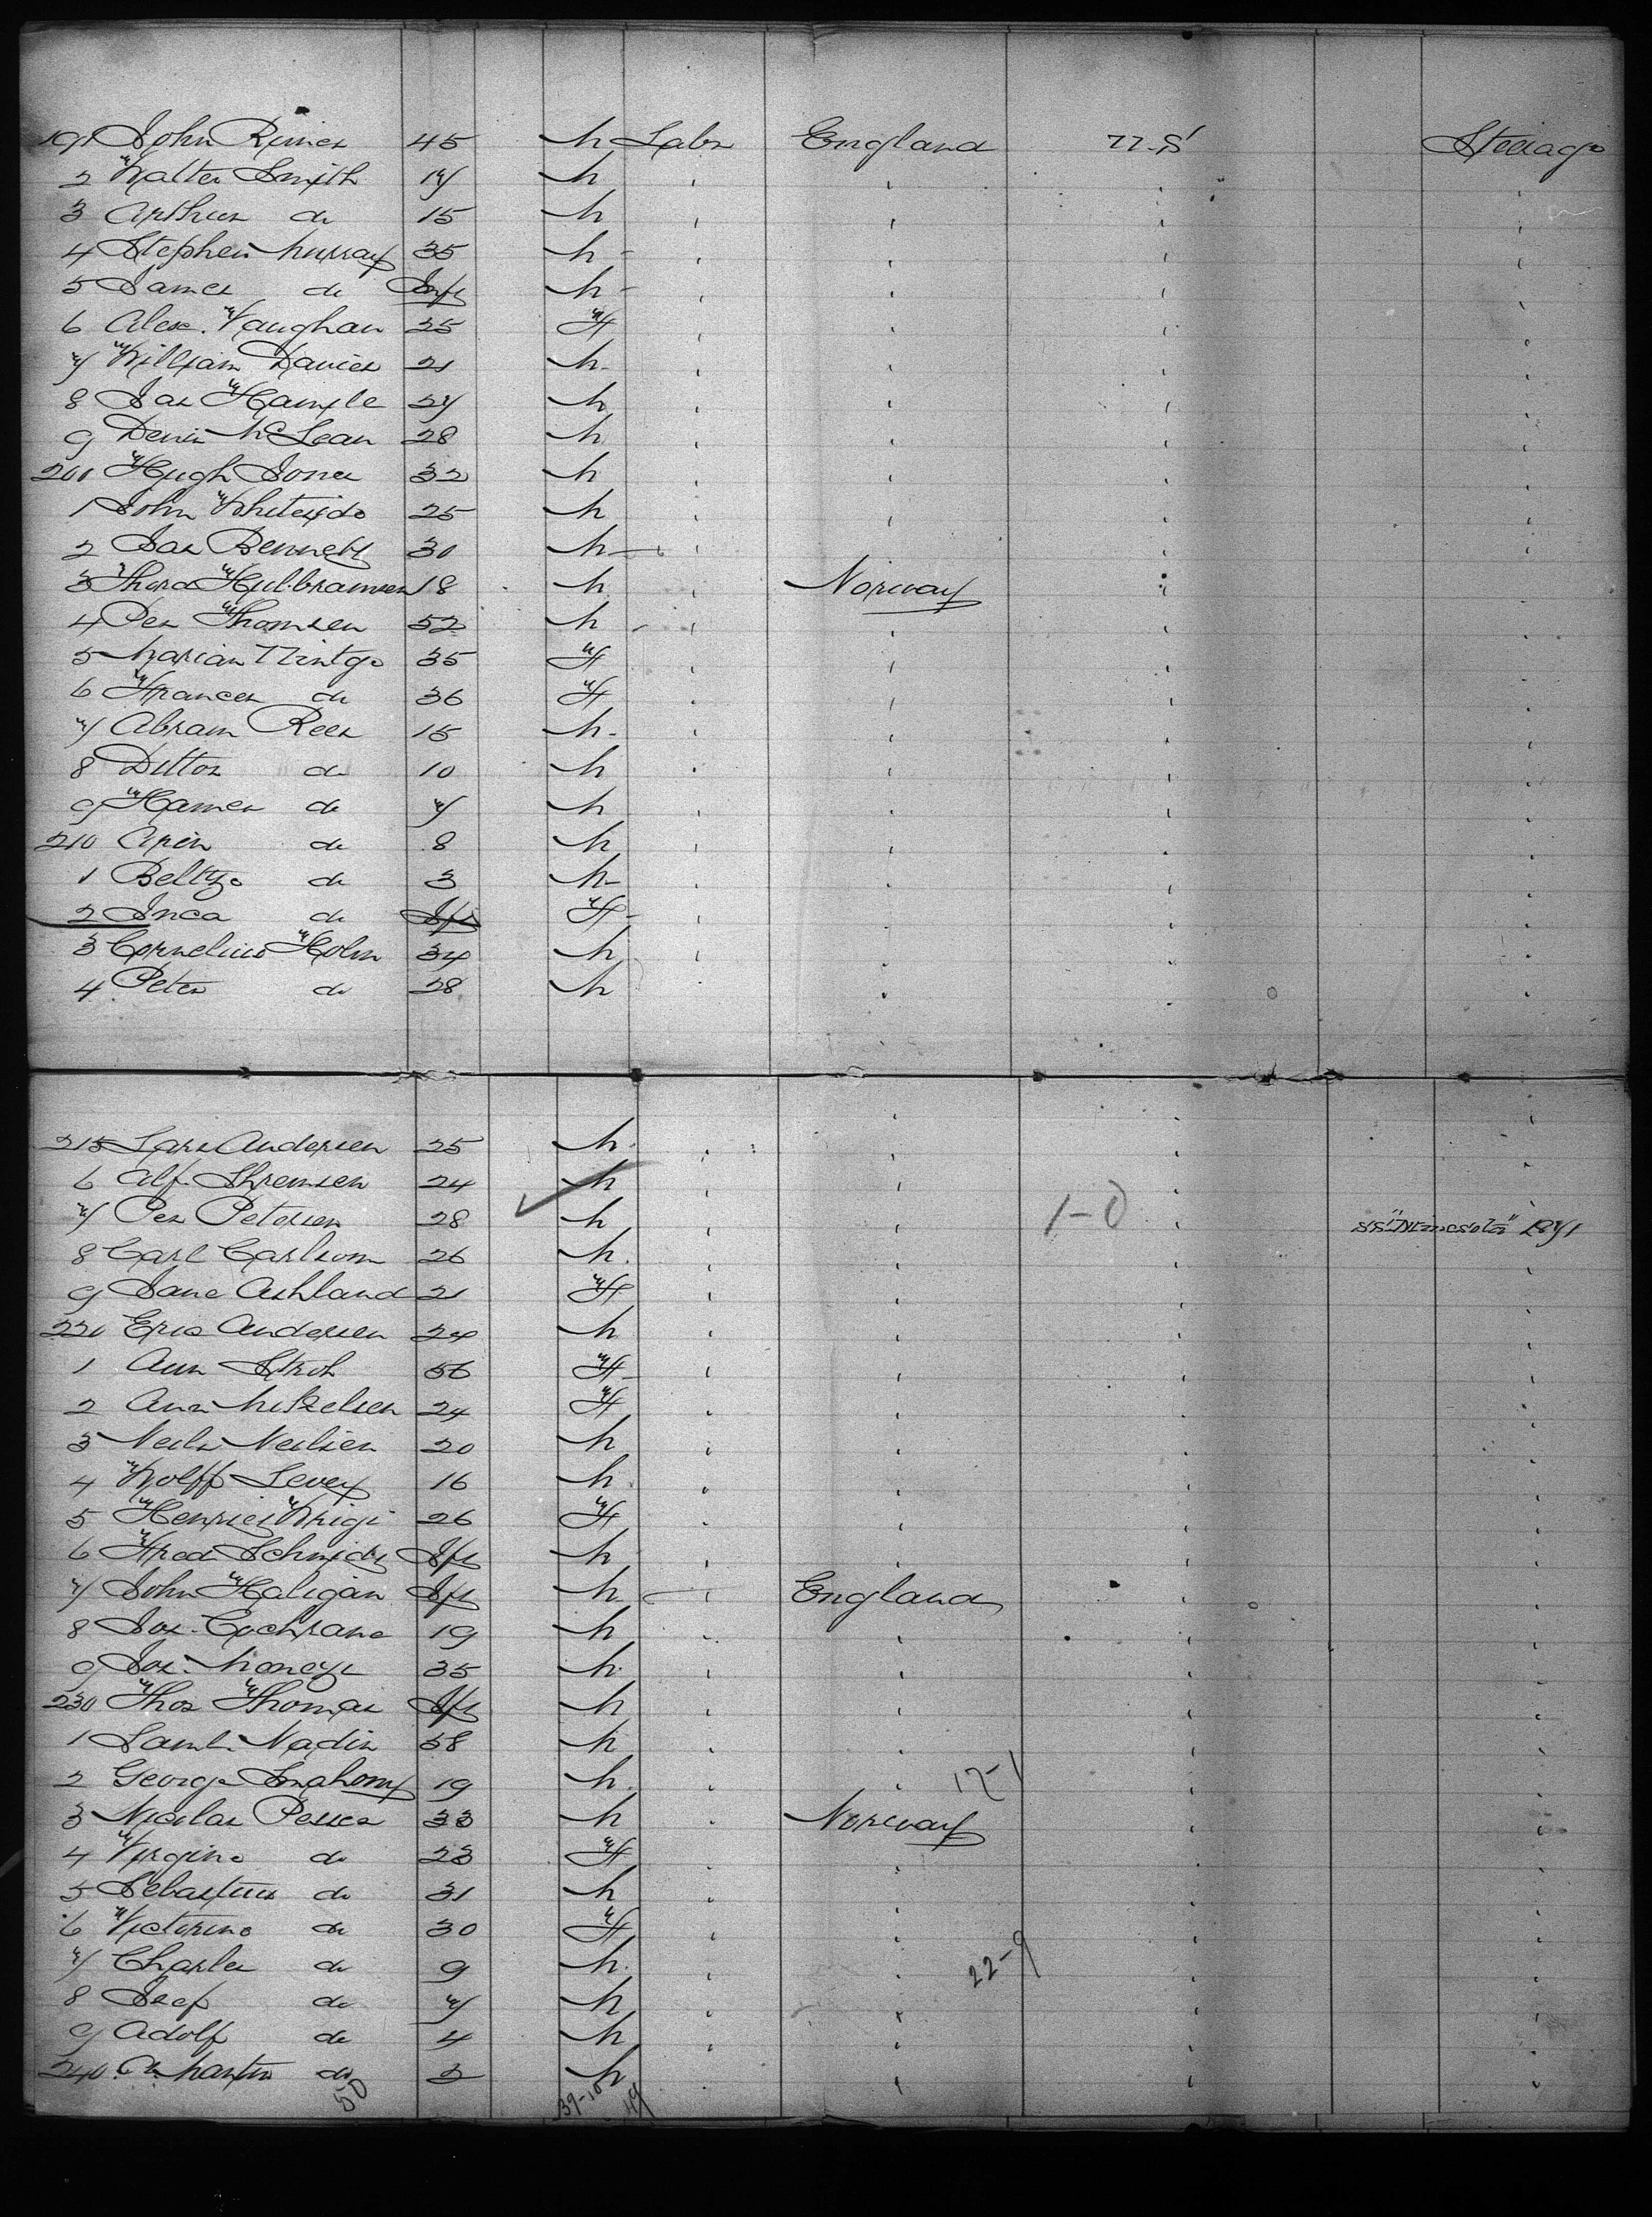 191 John Rimes 45 M Labr England U.S. Steerage
2 Walter Smith 17 M
3 Arthur do 15 M
4 Stephen Murray 35 M
5 James do Inft M
6 Alex. Vaughan 25 F
7 William Davies 21 M
8 Jas Hample 27 M
9 Denis McLean 28 M
200 Hugh Jones 32 M
1 John Whiteside 25 M
2 Jas Bennett 30 M
3 18 M Norway
4 Per Thomsen 52 M
5 Marian 35 F
6 Frances do 36 F
7 Abram Rees 15 M
8 Dittos do 10 M
9 Hames do 7 M
210 Arin do 8 M
1 do 3 M
2 Inca do Ift F
3 Cornelius Holm 34 M
4 Peter do 28 M
215 Lars Andersen 25 M
6 Alf. 24 M
7 Per Petersen 28 M 1-0 SS "Minnesota" 1871
8 Carl Carlsom 26 M
9 Jane Ashland 21 F
220 Eric Andersen 24 M
1 Ann Stroh 56 F
2 Ann Mikelsen 24 F
3 Neils Neilsen 20 M
4 Wolff Levey 16 M
5 26 F
6 Fred Schmidt Ift M
7 John Haligan Ift M England
8 Jos. Cochrane 19 M
9 Jos. 35 M
230 Thos Thomas Ift M
1 Saml. Nadin 58 M
2 George 19 M 17-1
3 Nicolas 33 M Norway
4 Virgine do 23 F
5 do 31 M
6 Victorine do 30 F
7 Charles do 9 M 22-9
8 do 7 M
9 Adolf do 4 M
240 do 2 M
50 39-10 49